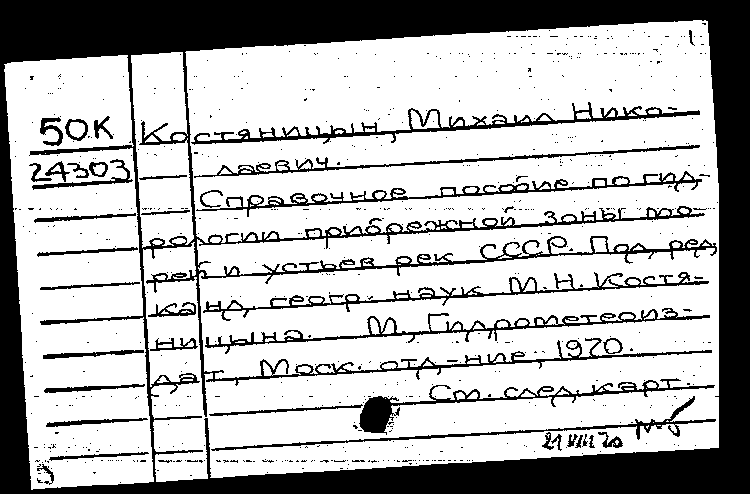 1
50К Костяницын, Михаил Нико-
24303 лаевич.
Справочное пособие по гид-
рологии прибрежной зоны мо-
рей и устьев рек СССР. Под ред.
канд. геогр. наук М.Н. Костя-
ницына. М., Гидрометеоиз-
дат, Моск. отд-ние, 1970.
См. след. карт.
21 VIII 70